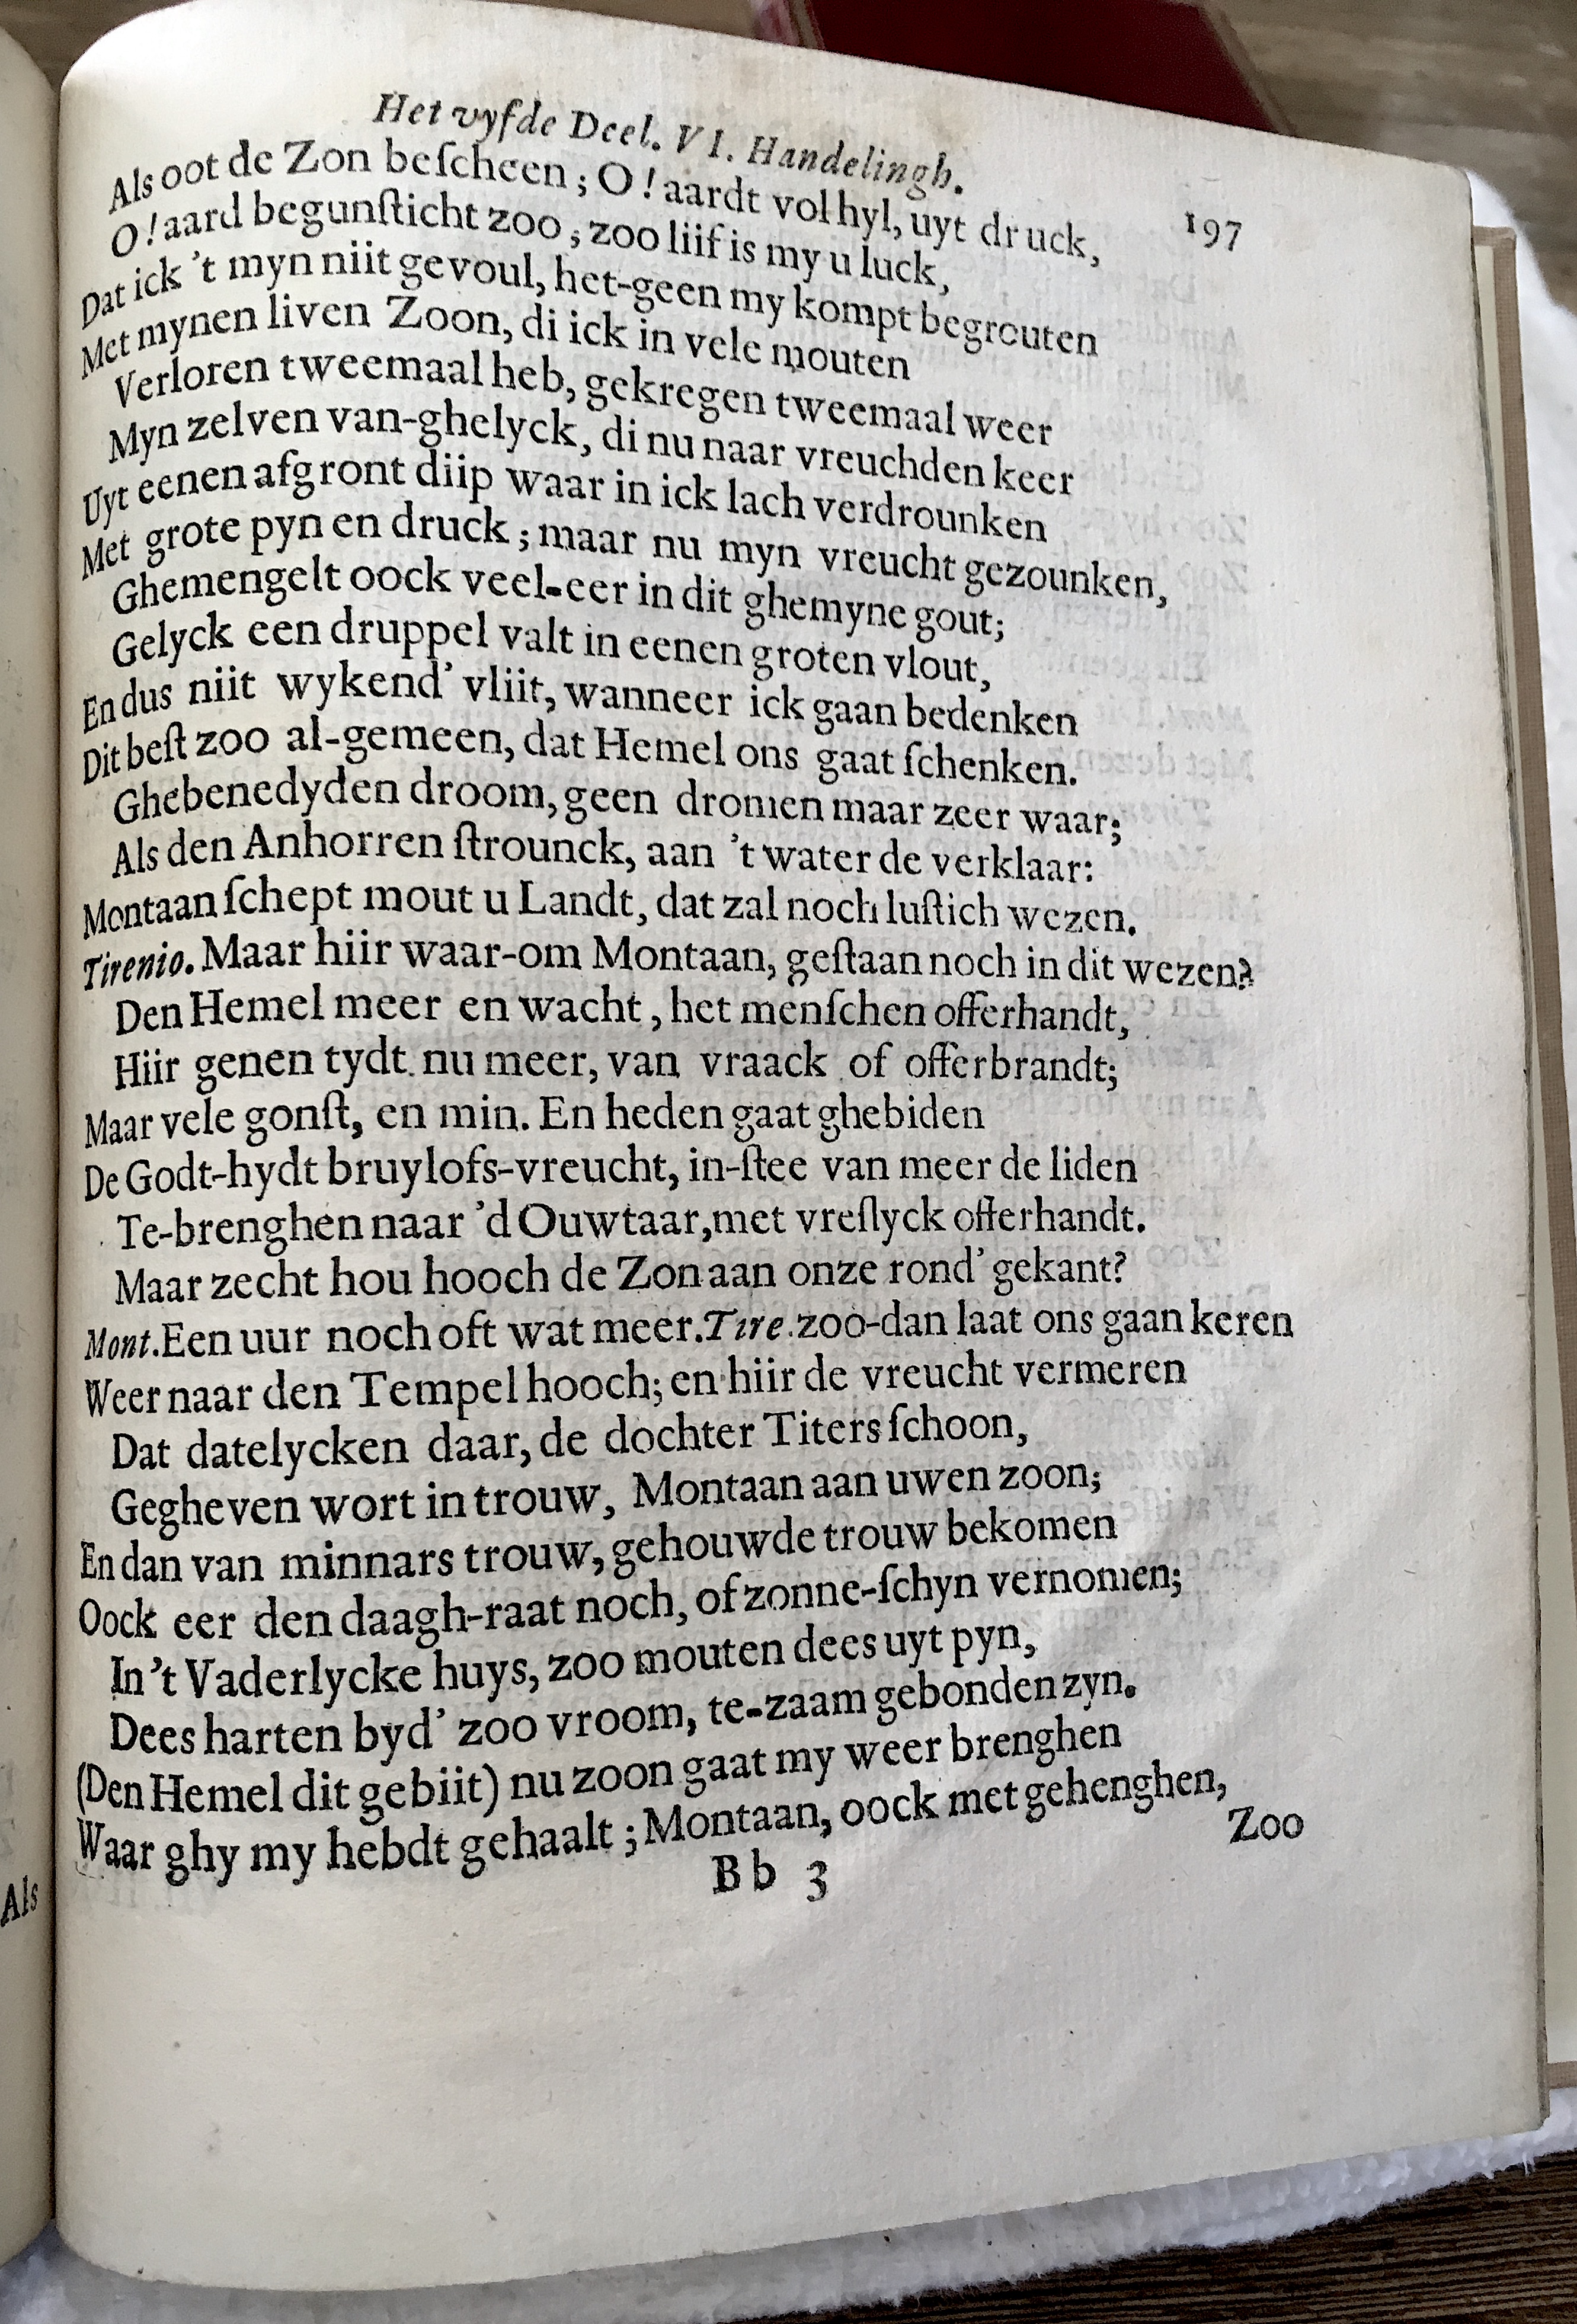 Het vyfde Deel. VI. Handelingh.
197
Als oot de Zon beſcheen; O! aardt vol hyl, uyt druck,
O! aard begunſticht zoo, zoo liif is my u luck,
Dat ick 't myn niit gevoul, het-geen my kompt begrouten
Met mynen liven Zoon, di ick in vele mouten
Verloren tweemaal heb, gekregen tweemaal weer
Myn zelven van-ghelyck, di nu naar vreuchden keer
Uyt eenen afgront diip waar in ick lach verdrounken
Met grote pyn en druck; maar nu myn vreucht gezounken,
Ghemengelt oock veel-eer in dit ghemyne gout;
Gelyck een druppel valt in eenen groten vlout,
En dus niit wykend' vliit, wanneer ick gaan bedenken
Dit beſt zoo al-gemeen, dat Hemel ons gaat ſchenken.
Ghebenedyden droom, geen dromen maar zeer waar;
Als den Anhorren ſtrounck, aan 't water de verklaar:
Montaan ſchept mout u Landt, dat zal noch luſtich wezen.
Tirenio. Maar hiir waar-om Montaan, geſtaan noch in dit wezen?
Den Hemel meer en wacht, het menſchen offerhandt,
Hiir genen tydt nu meer, van vraack of offerbrandt;
Maar vele gonſt, en min. En heden gaat ghebiden
De Godt-hydt bruylofs-vreucht, in-ſtee van meer de liden
Te-brenghen naar 'd Ouwtaar, met vreſlyck offerhandt.
Maar zecht hou hooch de Zon aan onze rond' gekant?
Mont. Een uur noch oft wat meer. Tire. zoo-dan laat ons gaan keren
Weer naar den Tempel hooch; en hiir de vreucht vermeren
Dat datelycken daar, de dochter Titers ſchoon,
Gegheven wort in trouw, Montaan aan uwen zoon;
En dan van minnars trouw, gehouwde trouw bekomen
Oock eer den daagh-raat noch, of zonne-ſchyn vernomen;
In 't Vaderlycke huys, zoo mouten dees uyt pyn,
Dees harten byd' zoo vroom, te-zaam gebonden zyn.
(Den Hemel dit gebiit) nu zoon gaat my weer brenghen
Waar ghy my hebdt gehaalt; Montaan, oock met gehenghen,
Zoo
Bb 3
Als